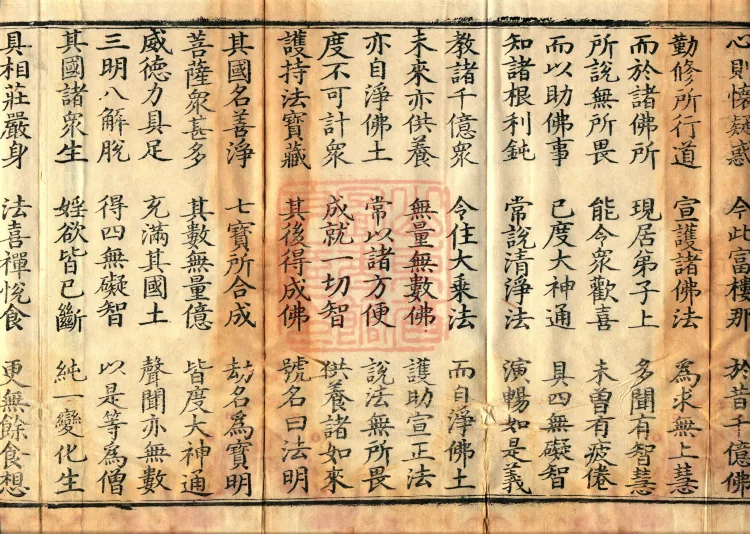 心則懷疑惑 今此富樓那 於昔千億佛
勤修所行道 宣護諸佛法 為求無上慧
而於諸佛所 現居弟子上 多聞有智慧
所說無所畏 能令眾歡喜 未曾有疲倦
而以助佛事 已度大神通 具四無礙智
知諸根利鈍 常說清淨法 演暢如是義
教諸千億眾 令住大乘法 而自淨佛土
未來亦供養 無量無數佛 護助宣正法
亦自淨佛土 常以諸方便 說法無所畏
度不可計眾 成就一切智 供養諸如來
護持法寶藏 其後得成佛 號名曰法明
其國名善淨 七寶所合成 劫名為寶明
菩薩眾甚多 其數無量億 皆度大神通
威德力具足 充滿其國土 聲聞亦無數
三明八解脫 得四無礙智 以是等為僧
其國諸眾生 婬欲皆已斷 純一變化生
具相莊嚴身 法喜禪悅食 更無餘食想